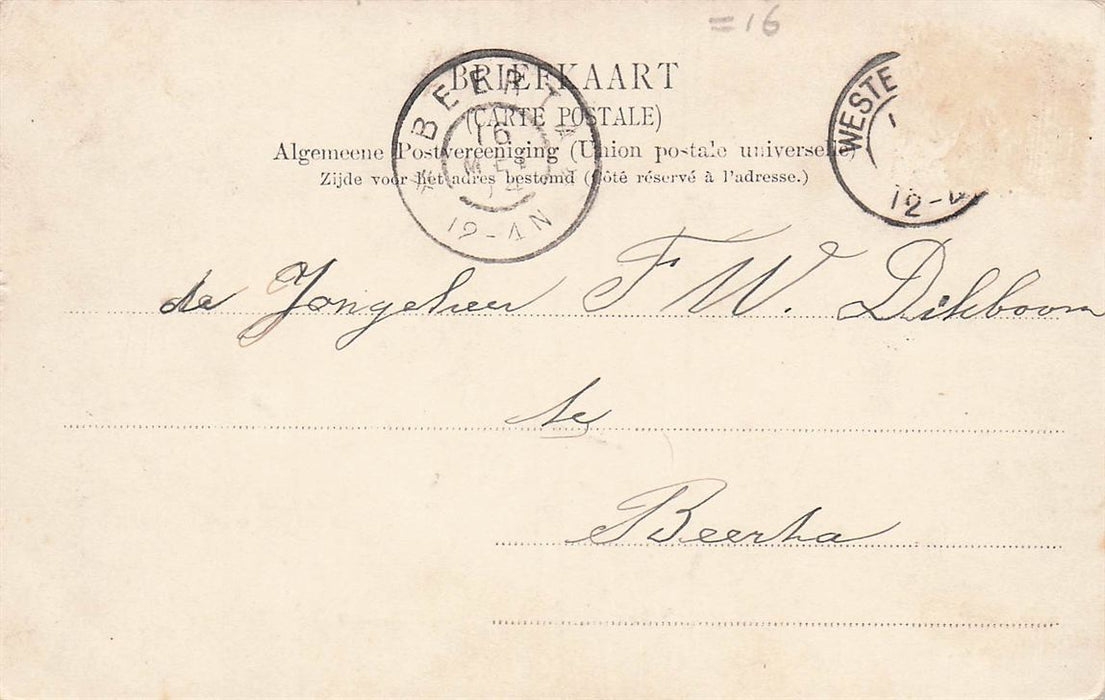 =16
BRIEFKAART
(CARTE POSTALE)
Algemeene Postvereeniging (Union postale universelle)
Zijde voor het adres bestemd (Côté réservé à l'adresse.)
BEERTA
16
MEI
04
12-4N
WESTE
12-
de Jongeheer F W. Dikboom
te
Beerta